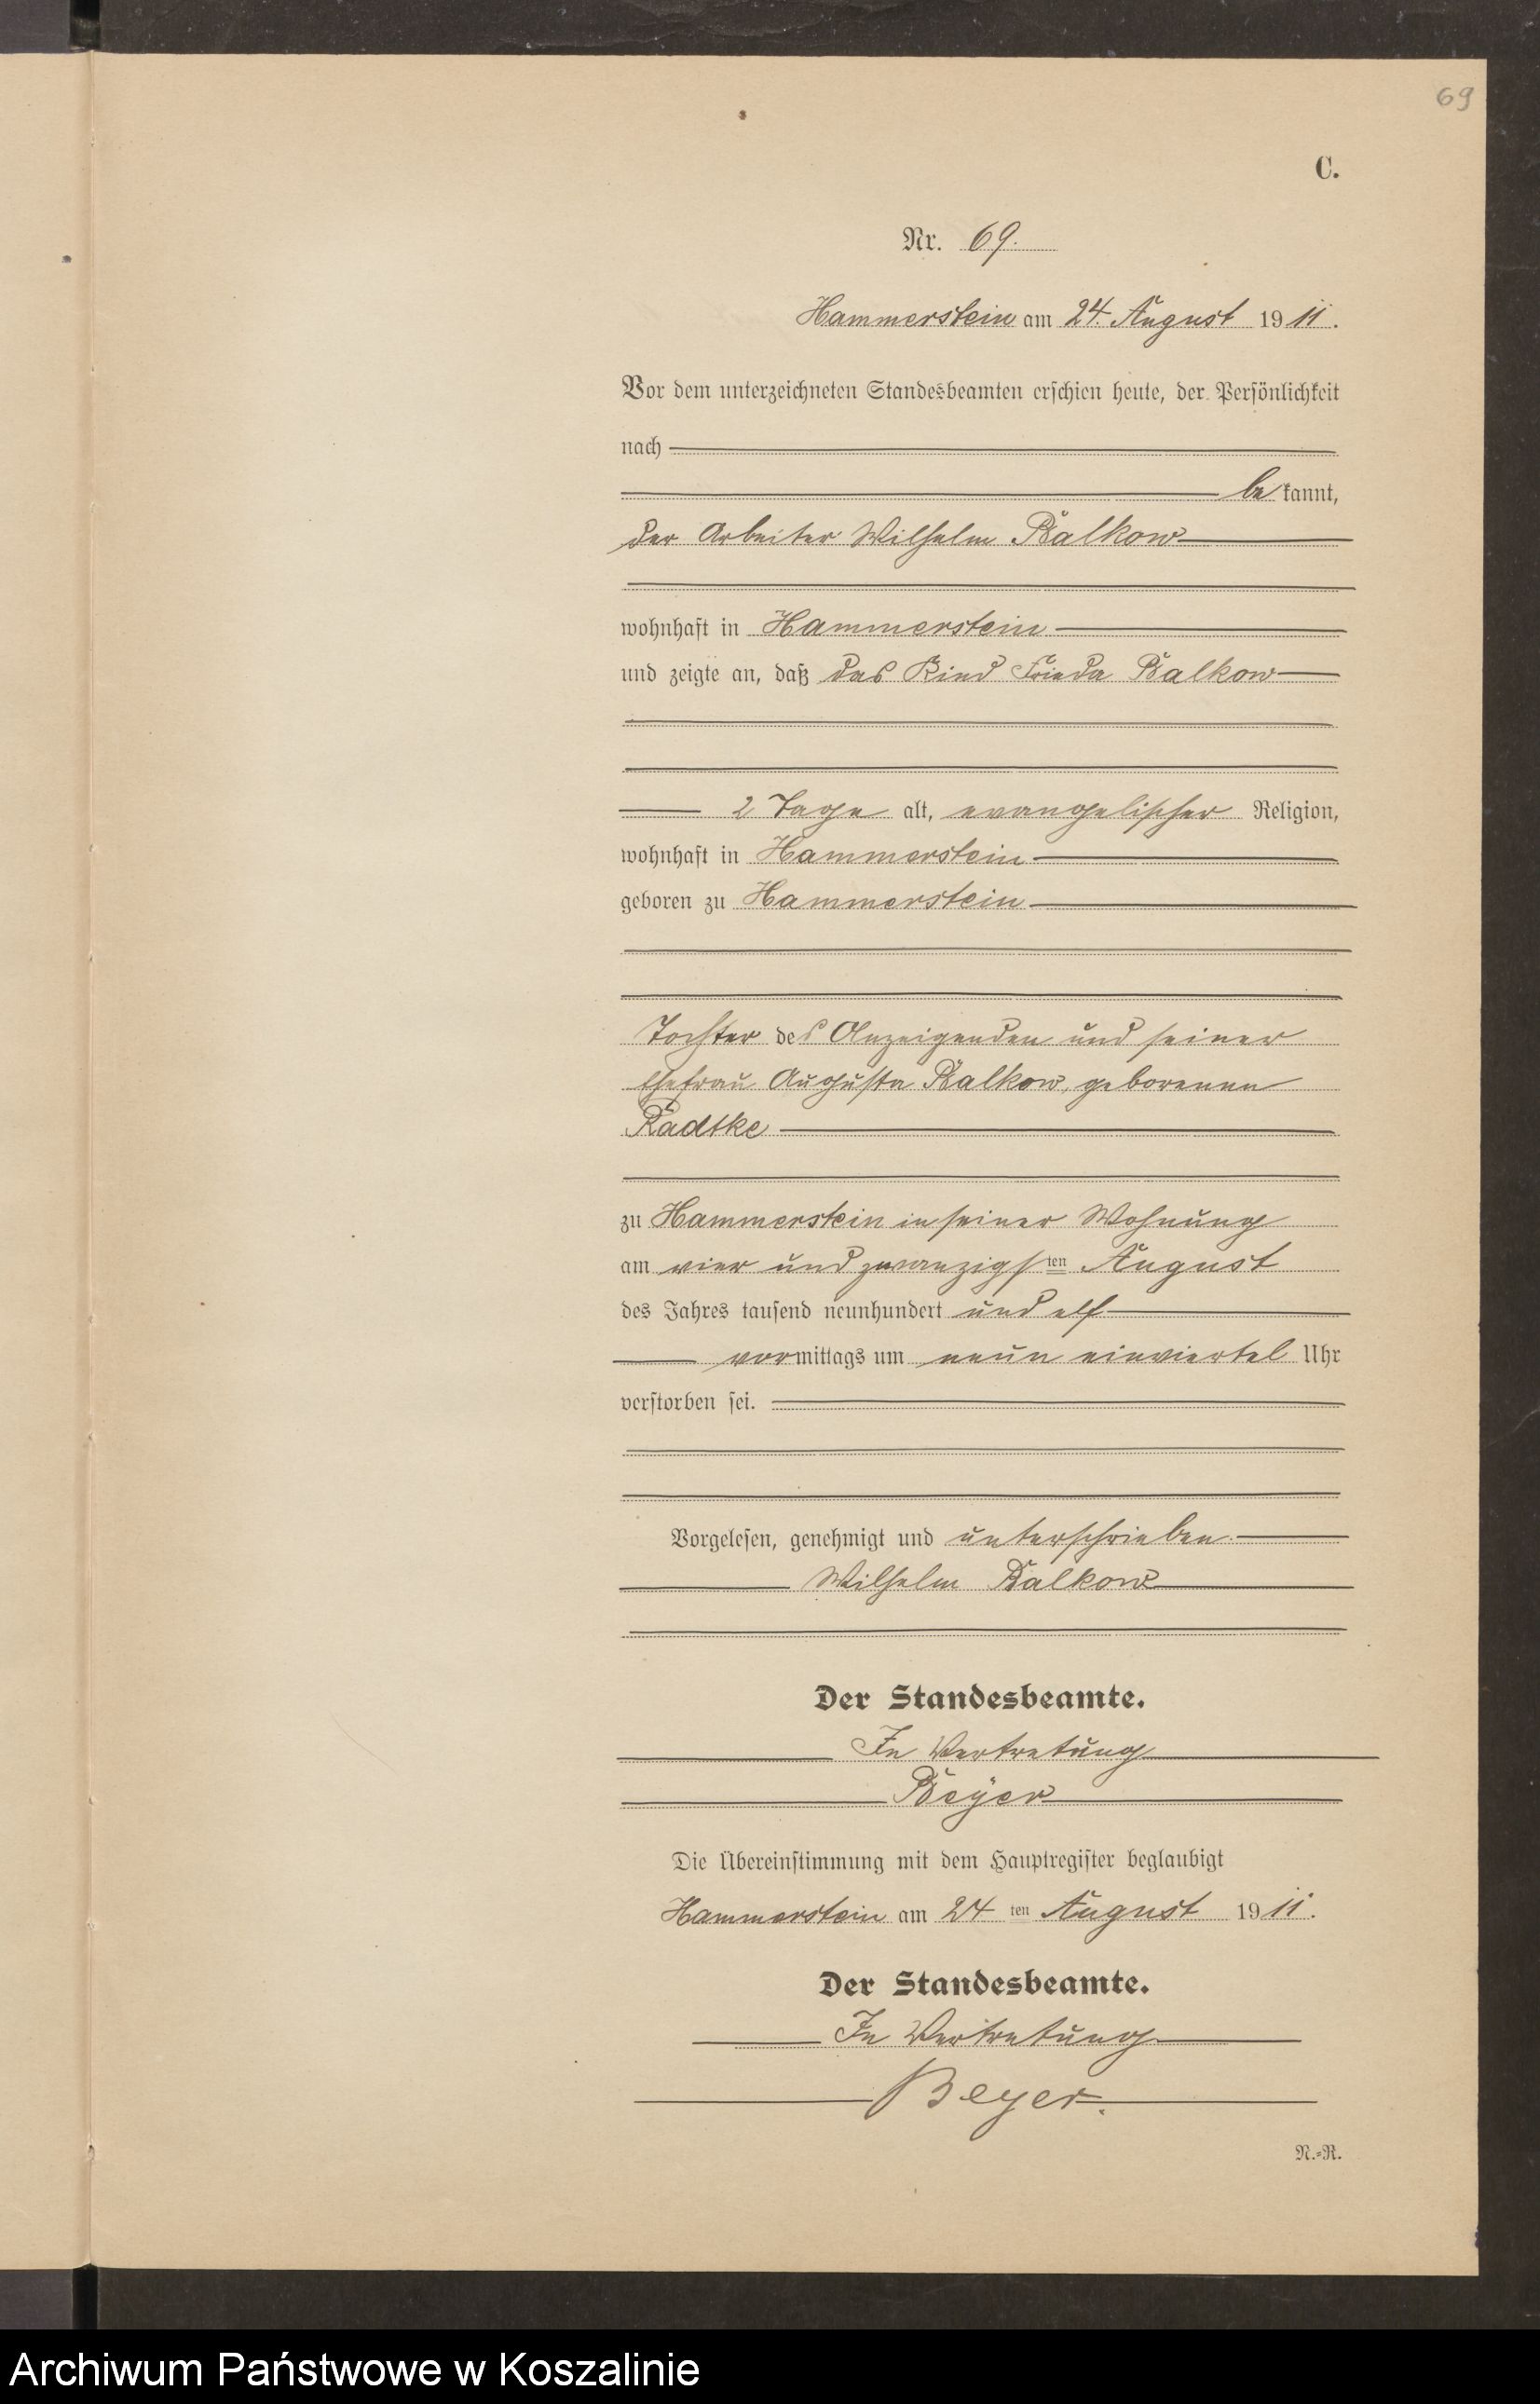 69
C.
Nr. 69.
Hammerstein am 24. August 1911.
Vor dem unterzeichneten Standesbeamten erschien heute, der Persönlichkeit
nach
bekannt,
der Arbeiter Wilhelm Balkow
wohnhaft in Hammerstein
und zeigte an, daß das Kind Frieda Balkow
2 Tage alt, evangelischer Religion,
wohnhaft in Hammerstein
geboren zu Hammerstein
Tochter des Anzeigenden und seiner
Ehefrau Augusta Balkow, geborenen
Radtke
zu Hammerstein in seiner Wohnung
am vier und zwanzigsten August
des Jahres tausend neunhundert und elf
vormittags um neun einviertel Uhr
verstorben sei.
Vorgelesen, genehmigt und unterschrieben.
Wilhelm Balkow
Der Standesbeamte.
In Vertretung
Beyer
Die Übereinstimmung mit dem Hauptregister beglaubigt
Hammerstein am 24 ten August 1911.
Der Standesbeamte.
In Vertretung
Beyer.
N.=R.
Archiwum Państwowe w Koszalinie